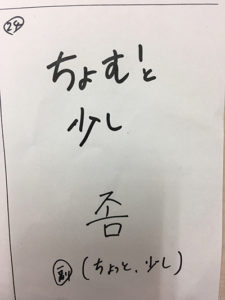 24
ちょむ!と
少し
좀
副 (ちょっと、少し)